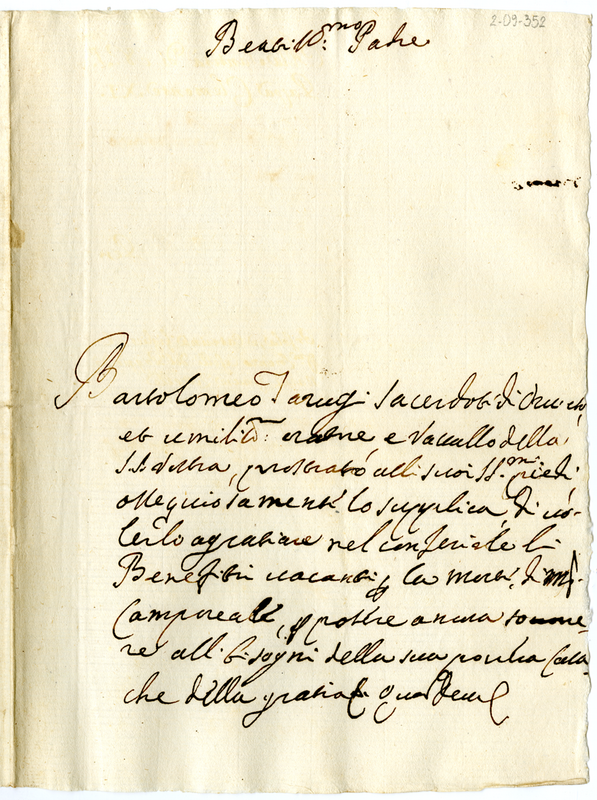 2-09-352
Beatiss.mo Padre
Bartolomeo Tarugi Sacerdote di Orvieto
et umiliss.mo oratore e Vassallo della
S.S. Vostra, prostrato alli suoi SS.mi piedi
ossequiosamente lo supplica di vo-
lerlo agratiare nel conferirle li
Benefitii vacanti per la morte di
Campereale, per potere ancora sovveni-
re alli bisogni della sua povera Casa
che della gratia Quam Deus